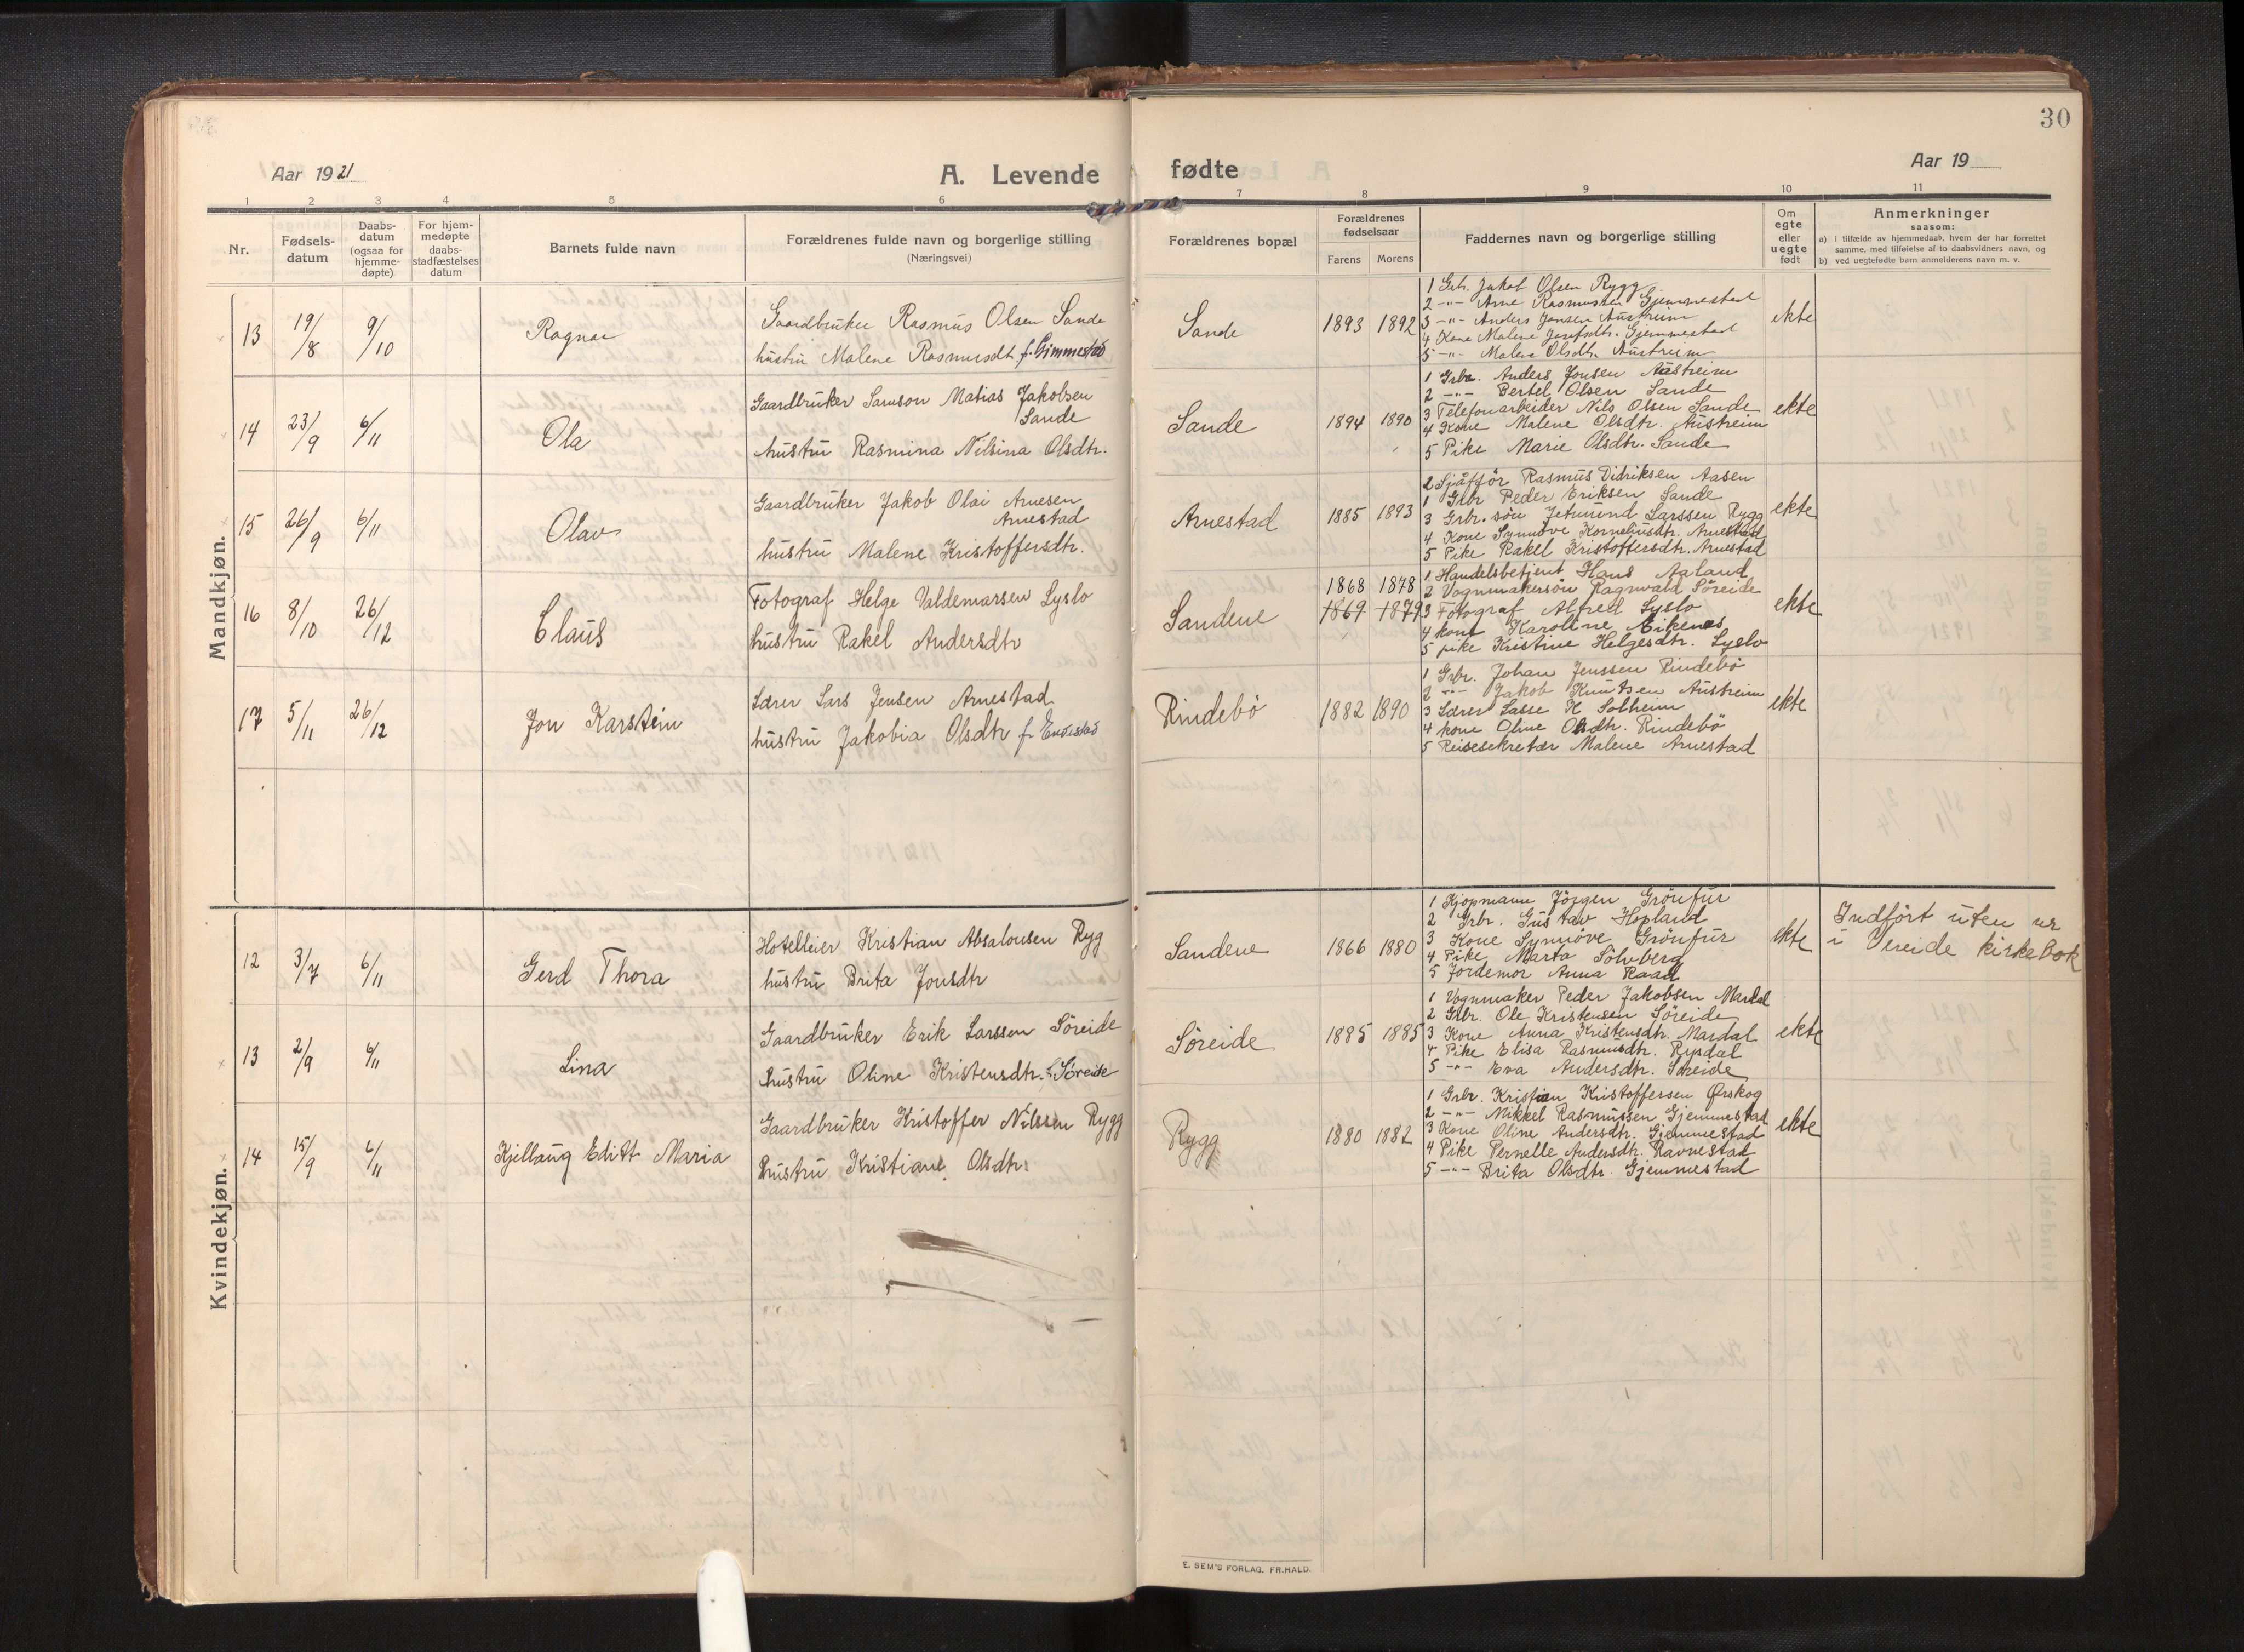 30
Aar 1921
A. Levende fødte
Aar 19
1 2 3 4 5 6 7 8 9 10 11
Nr.
Fødsels-
datum
Daabs-
datum
(ogsaa for
hjemme-
døpte)
For hjem-
medøpte
daabs-
stadfæstelses
datum
Barnets fulde navn
Forældrenes fulde navn og borgerlige stilling
(Næringsvei)
Forældrenes bopæl
Forældrenes
fødselsaar
Farens Morens
Faddernes navn og borgerlige stilling
Om
egte
eller
uegte
født
Anmerkninger
saasom:
a) i tilfælde av hjemmedaab, hvem der har forrettet
samme, med tilføielse af to daabsvidners navn, og
b) ved uegtefødte barn anmelderens navn m. v.
Mandkjøn.
13 19/8 9/10 Ragnar
Gaardbruker Rasmus Olsen Sande
hustru Malene Rasmusdtr. f. Gimmestad
Sande 1893 1892
1 Grb. Jakob Olsen Rygg
2 -"- Arne Rasmussen Gjemmestad
3 -"- Anders Jonsen Austreim
4 Kone Malene Josefsdtr. Gjemmestad
5 -"- Malene Olsdtr. Austreim
ekte
14 23/9 6/11 Ola
Gaardbruker Samson Matias Jakobsen
Sande
hustru Rasmina Nilsina Olsdtr.
Sande 1894 1890
1 Grbr. Anders Jonsen Austreim
2 -"- Bertel Olsen Sande
3 Telefonarbeider Nils Olsen Sande
4 Kone Malene Olsdtr. Austreim
5 Pike Marie Olsdtr. Sande
ekte
15 26/9 6/11 Olav
Gaardbruker Jakob Olai Arnesen
Arnestad
hustru Malene Kristoffersdtr.
Arnestad 1885 1893
2 Sjåffør Rasmus Didriksen Aasen
1 Grbr Peder Eriksen Sande
3 Grbr. søn Jetmund Larssen Rygg
4 Kone Synnøve Korneliusdtr. Arnestad
5 Pike Rakel Kristoffersdtr. Arnestad
ekte
16 8/10 26/12 Claus
Fotograf Helge Valdemarsen Lyslo
hustru Rakel Andersdtr
Sandene
1868 1878
1869 1879
1 Handelsbetjent Hans Aaland
2 Vognmakersøn Ragnvald Söreide
3 Fotograf Alfred Lyslo
4 kone Karoline Eikenes
5 pike Kristine Helgesdtr. Lyslo
ekte
17 5/11 26/12 Jon Karstein
Lærer Lars Jensen Arnestad
hustru Jakobia Olsdtr f. Endestad
Rindebö 1882 1890
1 Grbr. Johan Jenssen Rindebö
2 -"- Jakob Knutsen Austreim
3 Lærer Lasse K Solheim
4 kone Oline Olsdtr. Rindebö
5 Reisesekretær Malene Arnestad
ekte
Kvindekjøn.
12 3/7 6/11 Gerd Thora
Hotelleier Kristian Absalonsen Ryg
hustru Brita Jonsdtr
Sandene 1866 1880
1 Kjopmann Jörgen Grönfur
2 Grbr. Gustav Hopland
3 Kone Synnöve Grönfur
4 Pike Marta Sölvberg
5 Jordemor Anna Raad
ekte
Indført uten nr
i Vereide kirkebok
13 2/9 6/11 Lina
Gaardbruker Erik Larssen Söreide
hustru Oline Kristensdtr. f. Söreide
Söreide 1885 1885
1 Vognmaker Peder Jakobsen Mardal
2 Grbr. Ole Kristensen Söreide
3 Kone Anna Kristensdtr. Mardal
4 Pike Elisa Rasmusdtr. Rysdal
5 -"- Eva Andersdtr. Söreide
ekte
14 15/9 6/11 Kjellaug Editt Maria
Gaardbruker Kristoffer Nilssen Rygg
hustru Kristiane Olsdtr.
Rygg 1880 1882
1 Grbr. Kristian Kristoffersen Ørskog
2 -"- Mikkel Rasmussen Gjemmestad
3 Kone Oline Andersdtr. Gjemmestad
4 Pike Pernelle Andersdtr. Ravnestad
5 -"- Brita Olsdtr. Gjemmestad
ekte
E. SEM'S FORLAG, FR.HALD.